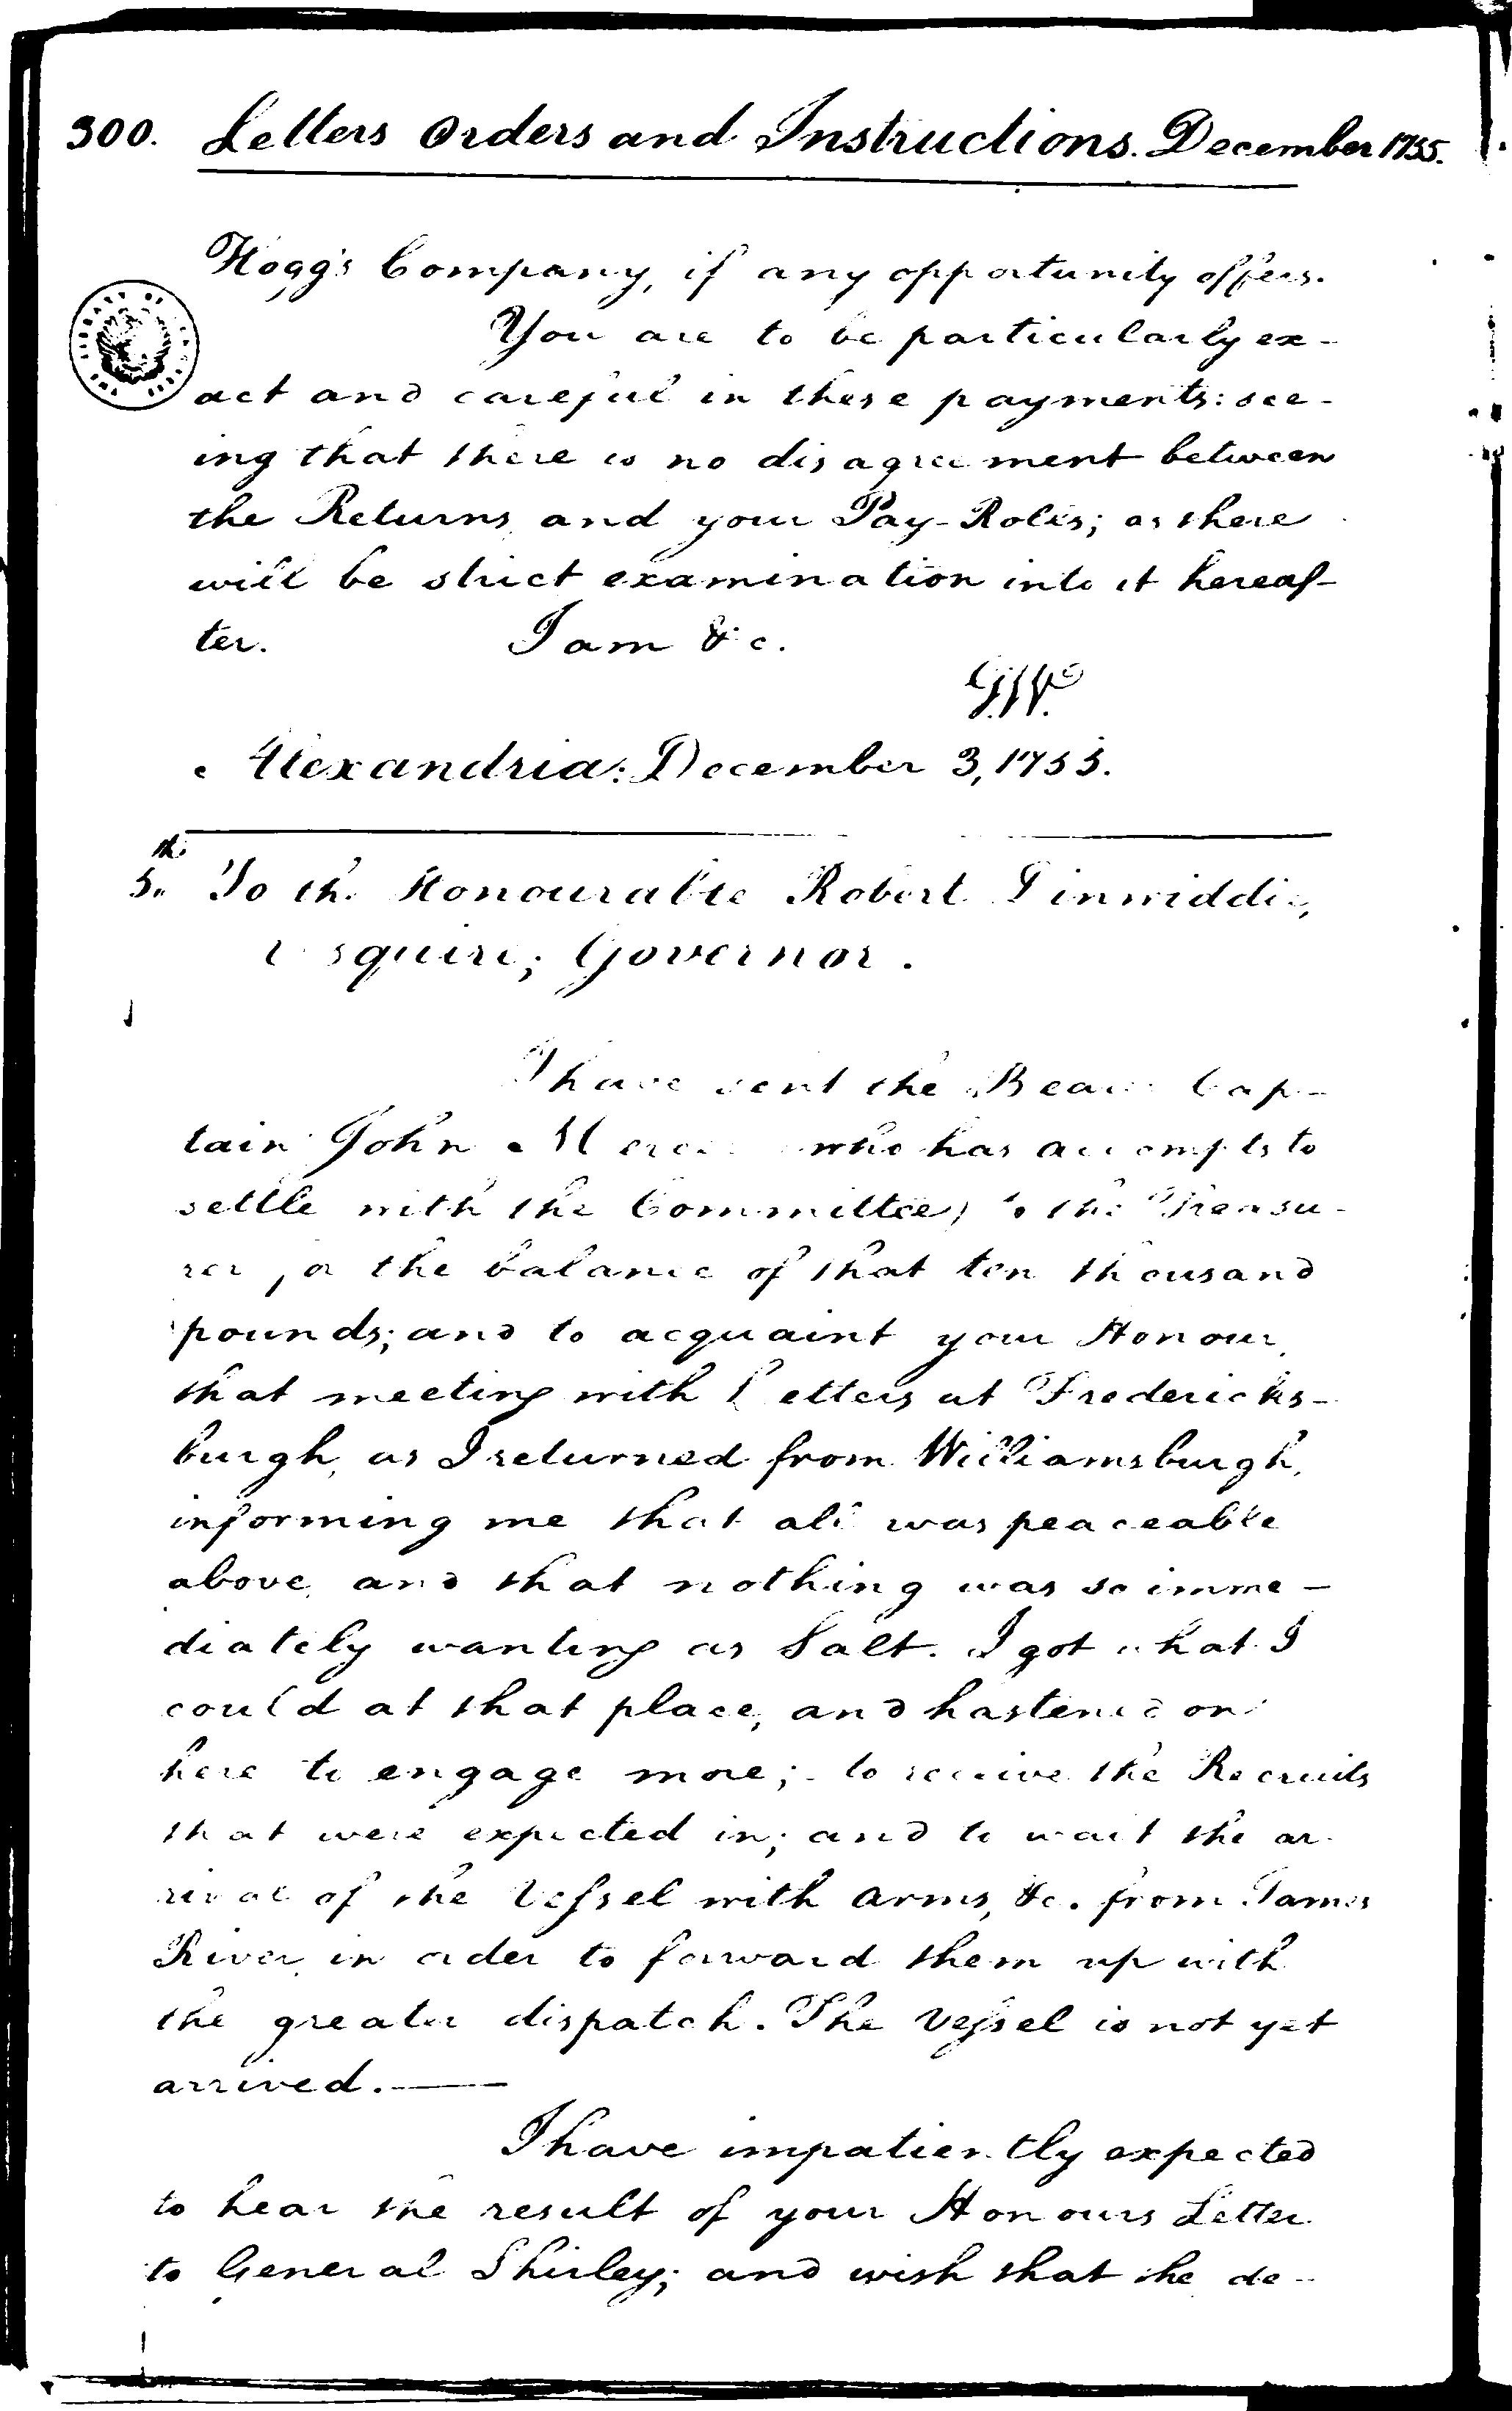 300. Letters Orders and Instructions. December 1755.
Hogg's Company, if any opportunity offers.
You are to be particularly ex-
act and careful in these payments: see-
ing that there is no disagreement between
the Returns and your Pay-Rolls; as there
will be strict examination into it hereaf-
ter. I am &c.
G.W.
Alexandria: December 3, 1755.
5th. To the Honourable Robert Dinwiddie,
Esquire; Governor.
I have sent the Bearer Cap-
tain John Mercer who has accompts to
settle with the Committee) to the Treasu-
rer for the balance of that ten thousand
pounds; and to acquaint your Honour,
that meeting with Letters at Fredericks-
burgh, as I returned from Williamsburgh,
informing me that all was peaceable
above, and that nothing was so imme-
diately wanting as Salt. I got what I
could at that place, and hastened on
here to engage more; to receive the Recruits
that were expected in; and to wait the ar-
rival of the Vessel with arms, &c. from James
River, in order to forward them up with
the greater dispatch. The Vessel is not yet
arrived.—
I have impatiently expected
to hear the result of your Honours Letter
to General Shirley; and wish that the de-